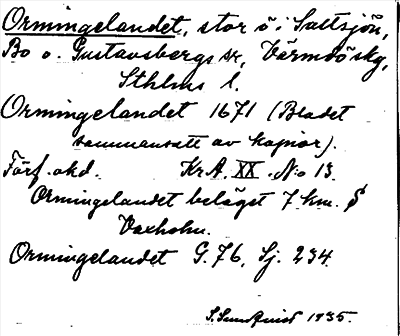 Ormingelandet, stor ö i Saltsjön,
Bo o. Gustavsbergs sk, Värmdö skg,
Sthlms l.
Ormingelandet 1671 (Bladet
sammansatt av kopior).
Förf. okd. Kr.A. XX. No 13.
Ormingelandet beläget 7 km. S
Vaxholm.
Ormingelandet G. 76, Sj. 234
S. Sundquist 1935.